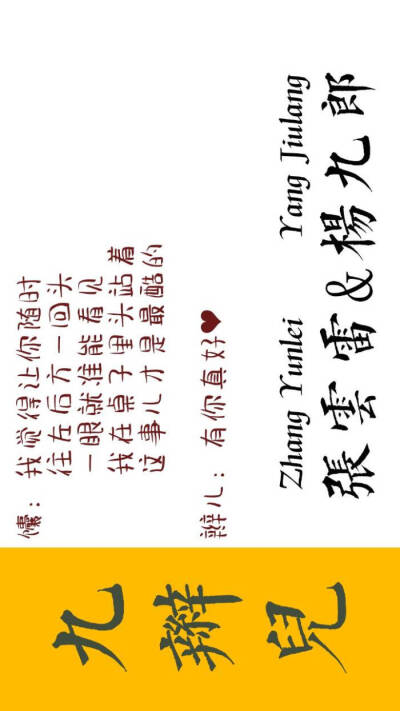 九
辮
兒
馕：我觉得让你随时
往左后方一回头
一眼就准能看见
我在桌子里头站着
这事儿才是最酷的
辫儿：有你真好❤
Zhang Yunlei Yang Jiulang
張雲雷&楊九郎